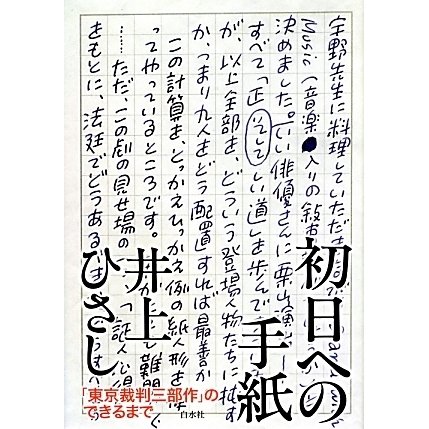 宇野先生に料理していただき
Music(音楽入りの叙事
決めました。いい俳優さんに栗山演
すべて「正しい道」を歩んで
が、以上全部を、どういう登場人物たちに托す
か、つまり九人をどう配置すれば最善か
この計算を、とっかえひっかえ例の紙人形を
ってやっているところです。
……ただ、この劇の見せ場の
をもとに、法廷でどうある
初日への
手紙
井上
ひさし
「東京裁判三部作」の
できるまで
白水社